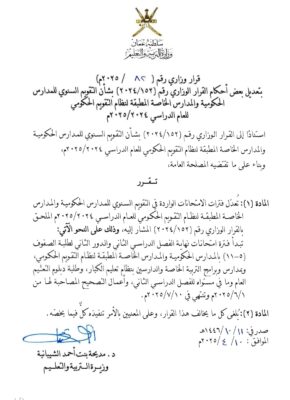 سلطنة عمان
وزارة التربية والتعليم
قرار وزاري رقم ( ٨٢ / ٢٠٢٥م)
بتعديل بعض أحكام القرار الوزاري رقم (٢٠٢٤/١٥٢) بشأن التقويم السنوي للمدارس
الحكومية والمدارس الخاصة المطبقة لنظام التقويم الحكومي
للعام الدراسي ٢٠٢٥/٢٠٢٤م
استنادًا إلى القرار الوزاري رقم (٢٠٢٤/١٥٢) بشأن التقويم السنوي للمدارس الحكومية
والمدارس الخاصة المطبقة لنظام التقويم الحكومي للعام الدراسي ٢٠٢٥/٢٠٢٤م،
وبناء على ما تقتضيه المصلحة العامة.
تقرر
المادة (١): تُعدّل فترات الامتحانات الواردة في التقويم السنوي للمدارس الحكومية والمدارس
الخاصة المطبقة لنظام التقويم الحكومي للعام الدراسي ٢٠٢٥/٢٠٢٤م الملحق
بالقرار الوزاري رقم (٢٠٢٤/١٥٢) المشار إليه، وذلك على النحو الآتي:
تبدأ فترة امتحانات نهاية الفصل الدراسي الثاني والدور الثاني لطلبة الصفوف
(٥-١١) بالمدارس الحكومية والمدارس الخاصة المطبقة لنظام التقويم الحكومي،
ومدارس وبرامج التربية الخاصة والدارسين بنظام تعليم الكبار، وطلبة دبلوم التعليم
العام وما في مستواه للفصل الدراسي الثاني، وأعمال التصحيح المصاحبة لها من
٢٠٢٥/٦/١م وتنتهي في ٢٠٢٥/٧/١٠م.
المادة (٢): يُلغى كل ما يخالف هذا القرار، وعلى المعنيين بالأمر تنفيذه كلٌّ فيما يخصه.
صدر في: ١١/ ١٠ /١٤٤٦هـ
الموافق: ١٠ / ٤ /٢٠٢٥م
د. مديحة بنت أحمد الشيبانية
وزيرة التربية والتعليم